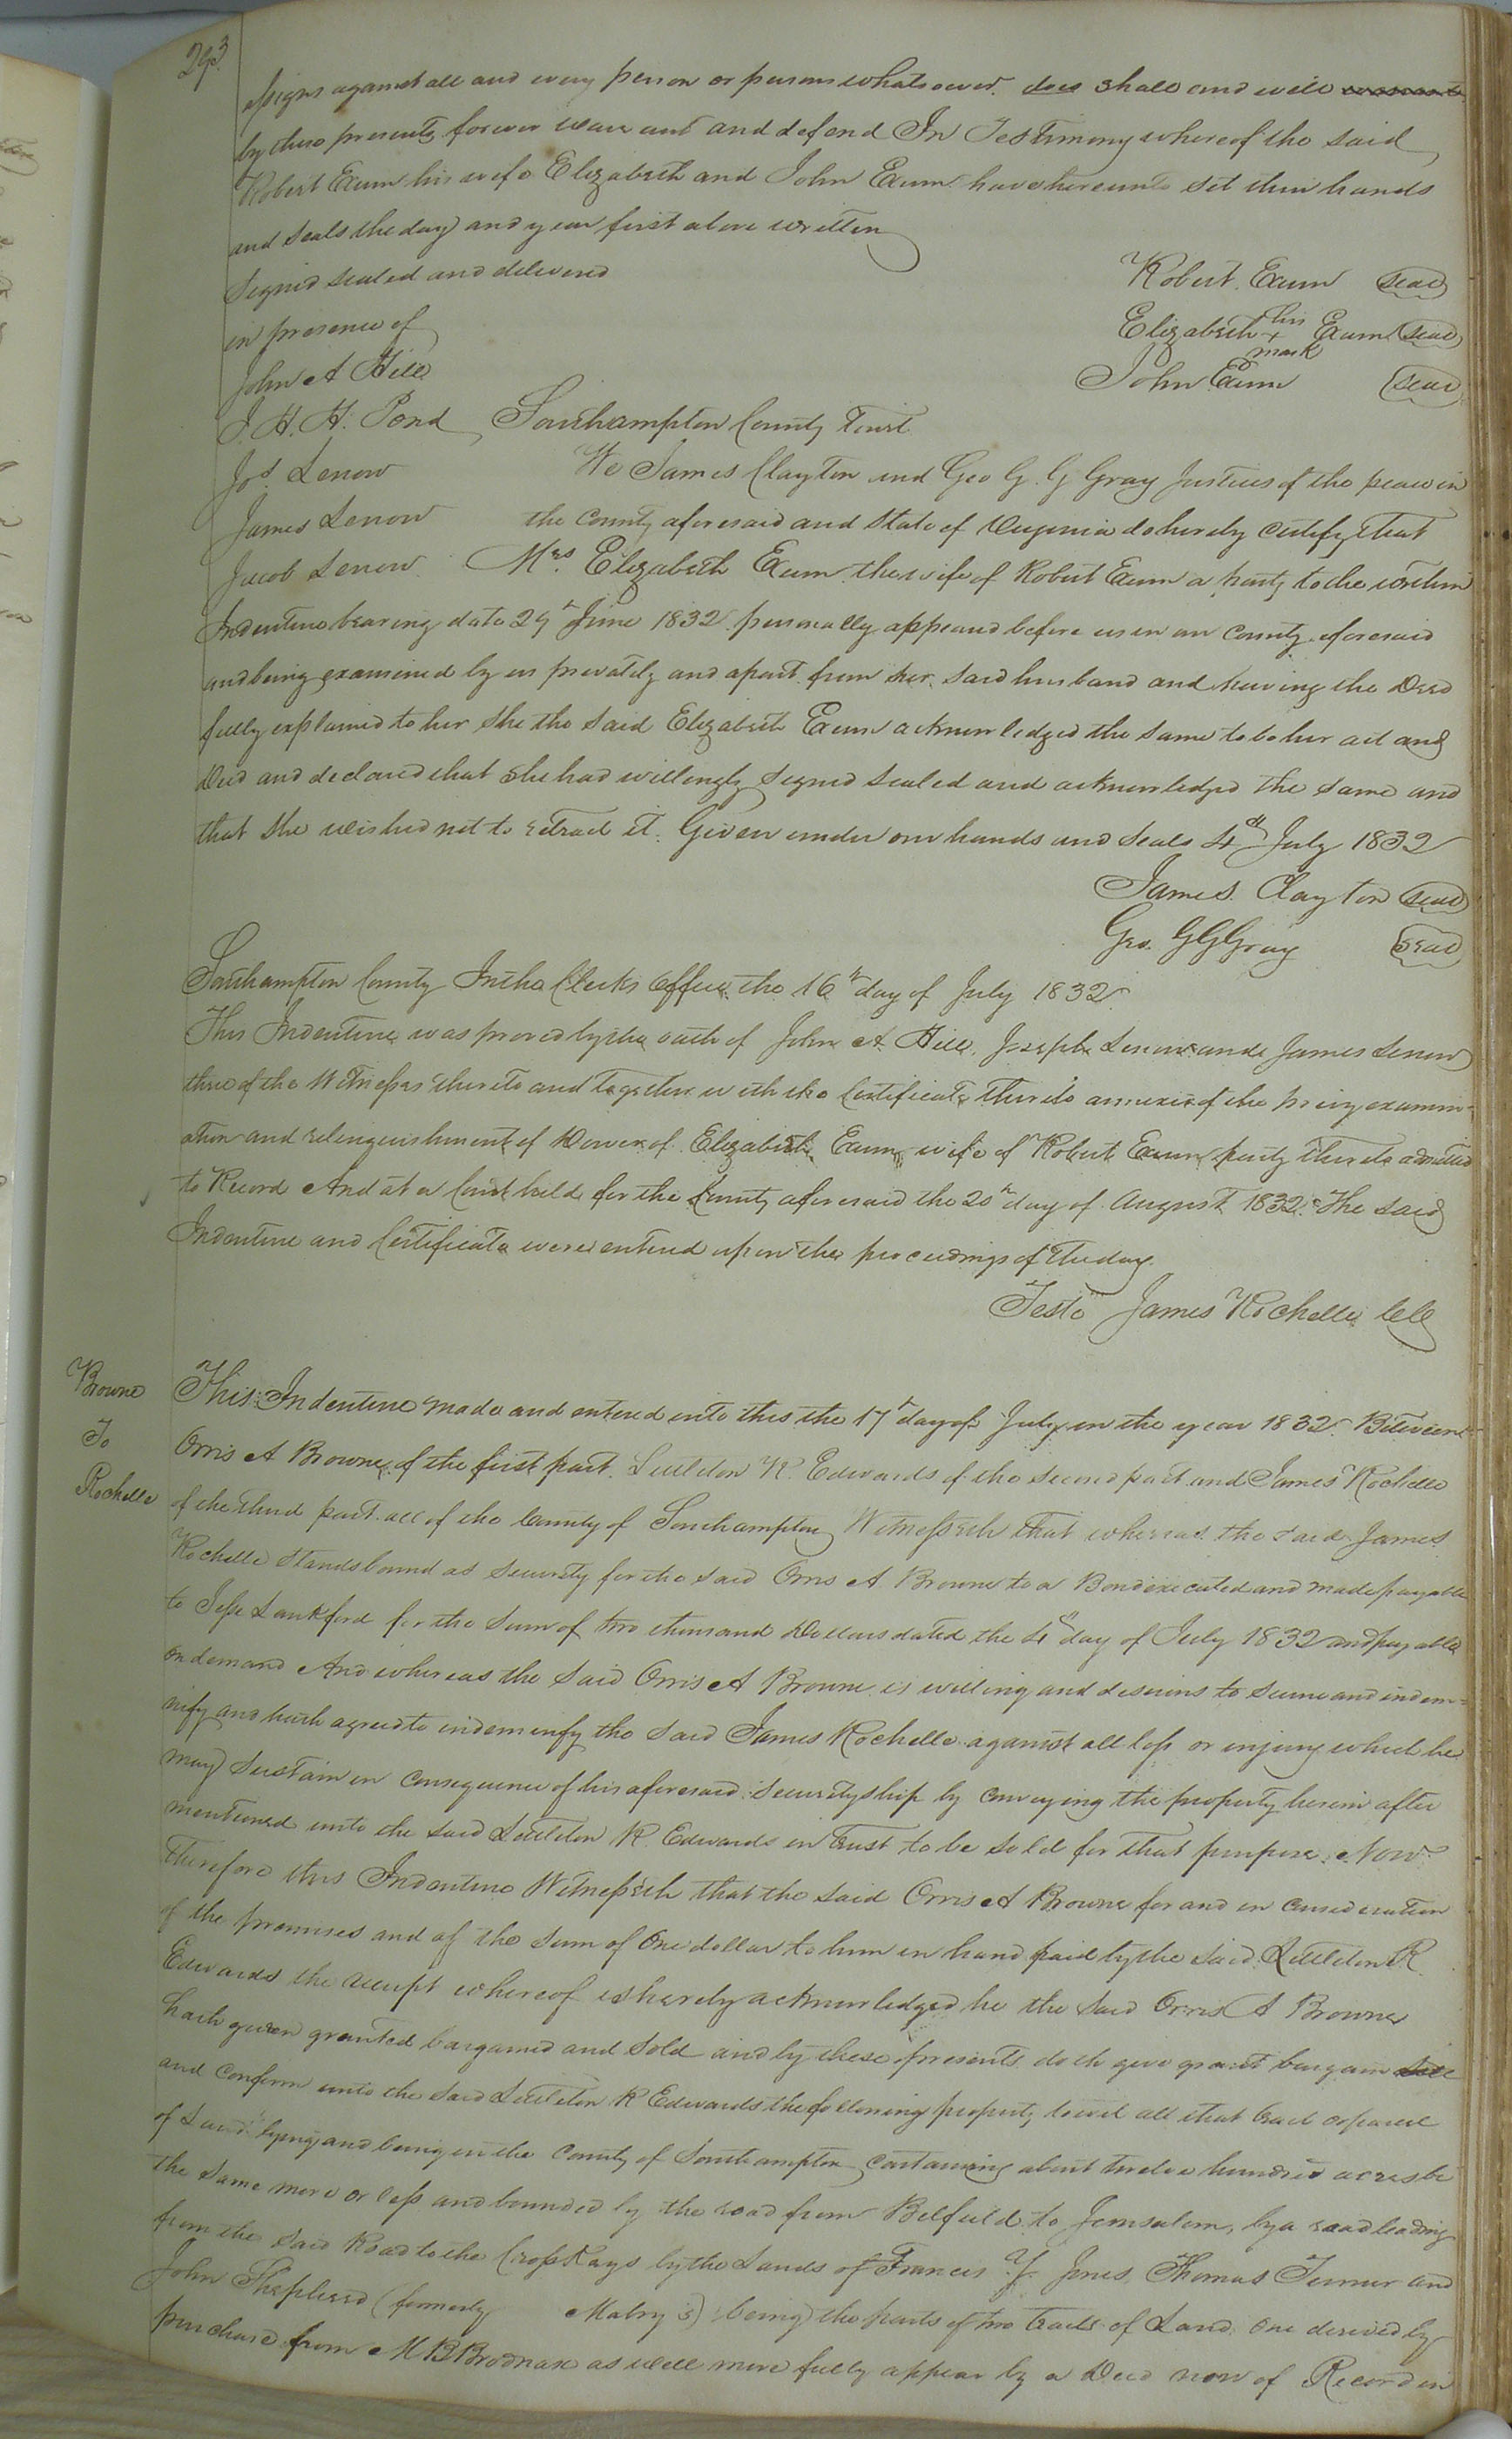 293
assigns against all and every person or persons whatsoever does shall and will
by these presents forever warrant and defend In Testimony whereof the said
Robert Exum his wife Elizabeth and John Exum have hereunto set their hands
and seals the day and year first above written
Signed sealed and delivered
in presence of
John A Hill
J. H. H. Pond
Jos. Lenow
James Lenow
Jacob Lenow
Robert Exum seal
Elizabeth his + mark Exum seal
John Exum seal
Southampton County Towit
We James Clayton and Geo G. G Gray Justices of the peace in
the County aforesaid and State of Virginia do hereby certify that
Mrs. Elizabeth Exum the wife of Robert Exum a party to the within
Indenture bearing date 29th June 1832 personally appeared before us in our County aforesaid
and being examined by us privately and apart from her said husband and having the Deed
fully explained to her She the said Elizabeth Exum acknowledged the same to be her act and
Deed and declared that She had willingly signed sealed and acknowledged the same and
that She wished not to retract it. Given under our hands and seals 4th July 1832
James Clayton seal
Geo. G G Gray seal
Southampton County In the Clerks Office the 16th day of July 1832
This Indenture was proved by the oath of John A Hill, Joseph Lenow and James Lenow
three of the Witnesses thereto and together with the Certificate thereto annexed of the privy examin-
ation and relinquishment of Dower of Elizabeth Exum wife of Robert Exum party thereto admitted
to Record And at a Court held for the County aforesaid the 20th day of August 1832 The said
Indenture and Certificate were entered upon the proceedings of the day.
Teste James Rochelle ClC
Browne
To
Rochelle
This Indenture made and entered into this the 17th day of July in the year 1832 Between
Orris A Browne of the first part Littleton R. Edwards of the second part and James Rochelle
of the third part all of the County of Southampton Witnesseth that whereas the said James
Rochelle stands bound as security for the said Orris A Browne to a Bond executed and made payable
to Jesse Lankford for the sum of two thousand Dollars dated the 4th day of July 1832 and payable
on demand And whereas the said Orris A Browne is willing and desirous to secure and indem-
nify and hath agreed to indemnify the said James Rochelle against all loss or injury which he
may sustain in consequence of his aforesaid securityship by conveying the property herein after
mentioned unto the said Littleton R. Edwards in trust to be sold for that purpose. Now
therefore this Indenture Witnesseth that the said Orris A Browne for and in consideration
of the premises and of the sum of One dollar to him in hand paid by the said Littleton R
Edwards the receipt whereof is hereby acknowledged he the said Orris A Browne
hath given granted bargained and sold and by these presents doth give grant bargain sell
and confirm unto the said Littleton R Edwards the following property towit all that tract or parcel
of Land lying and being in the County of Southampton containing about twelve hundred acres be
the same more or less and bounded by the road from Belfield to Jerusalem, by a road leading
from the said Road to the Cross Keys by the Lands of Francis Y. Jones, Thomas Turner and
John Shepherd (formerly Mabry's) being the parts of two tracts of Land One derived by
purchase from M B Brodnax as will more fully appear by a Deed now of Record in